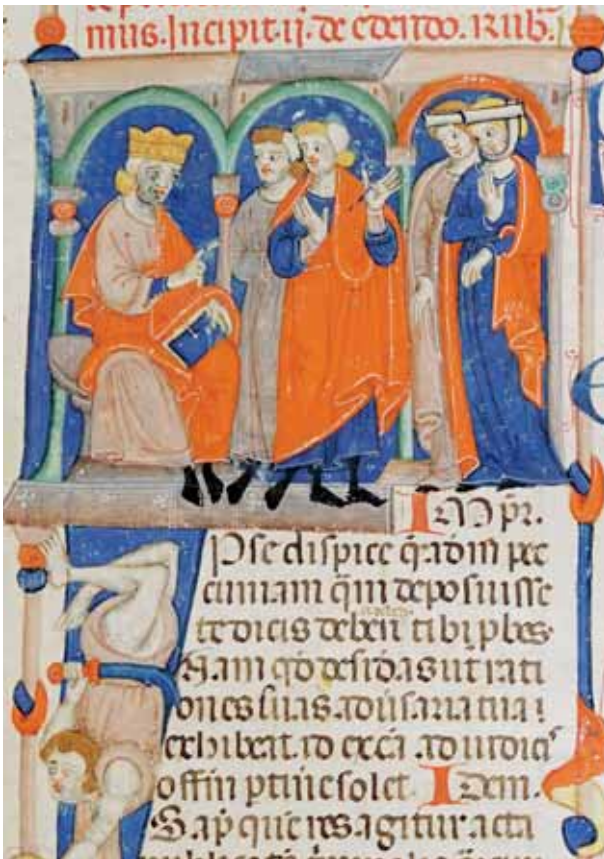 mus. Incipit .ij. de edendo. Rub.
Imp pr.
Pse dispice q̄adm pec
cuniam q̄m deposuisse
te dicis deberi tibi p̱bes.
Nam qd̄ desid̄as ut rati
ones suas adūsaria tua
exhibeat. id ex cā ad iudic̄
offm̄ ptin̄e solet. Idem.
S ap̄ quē res agitur acta